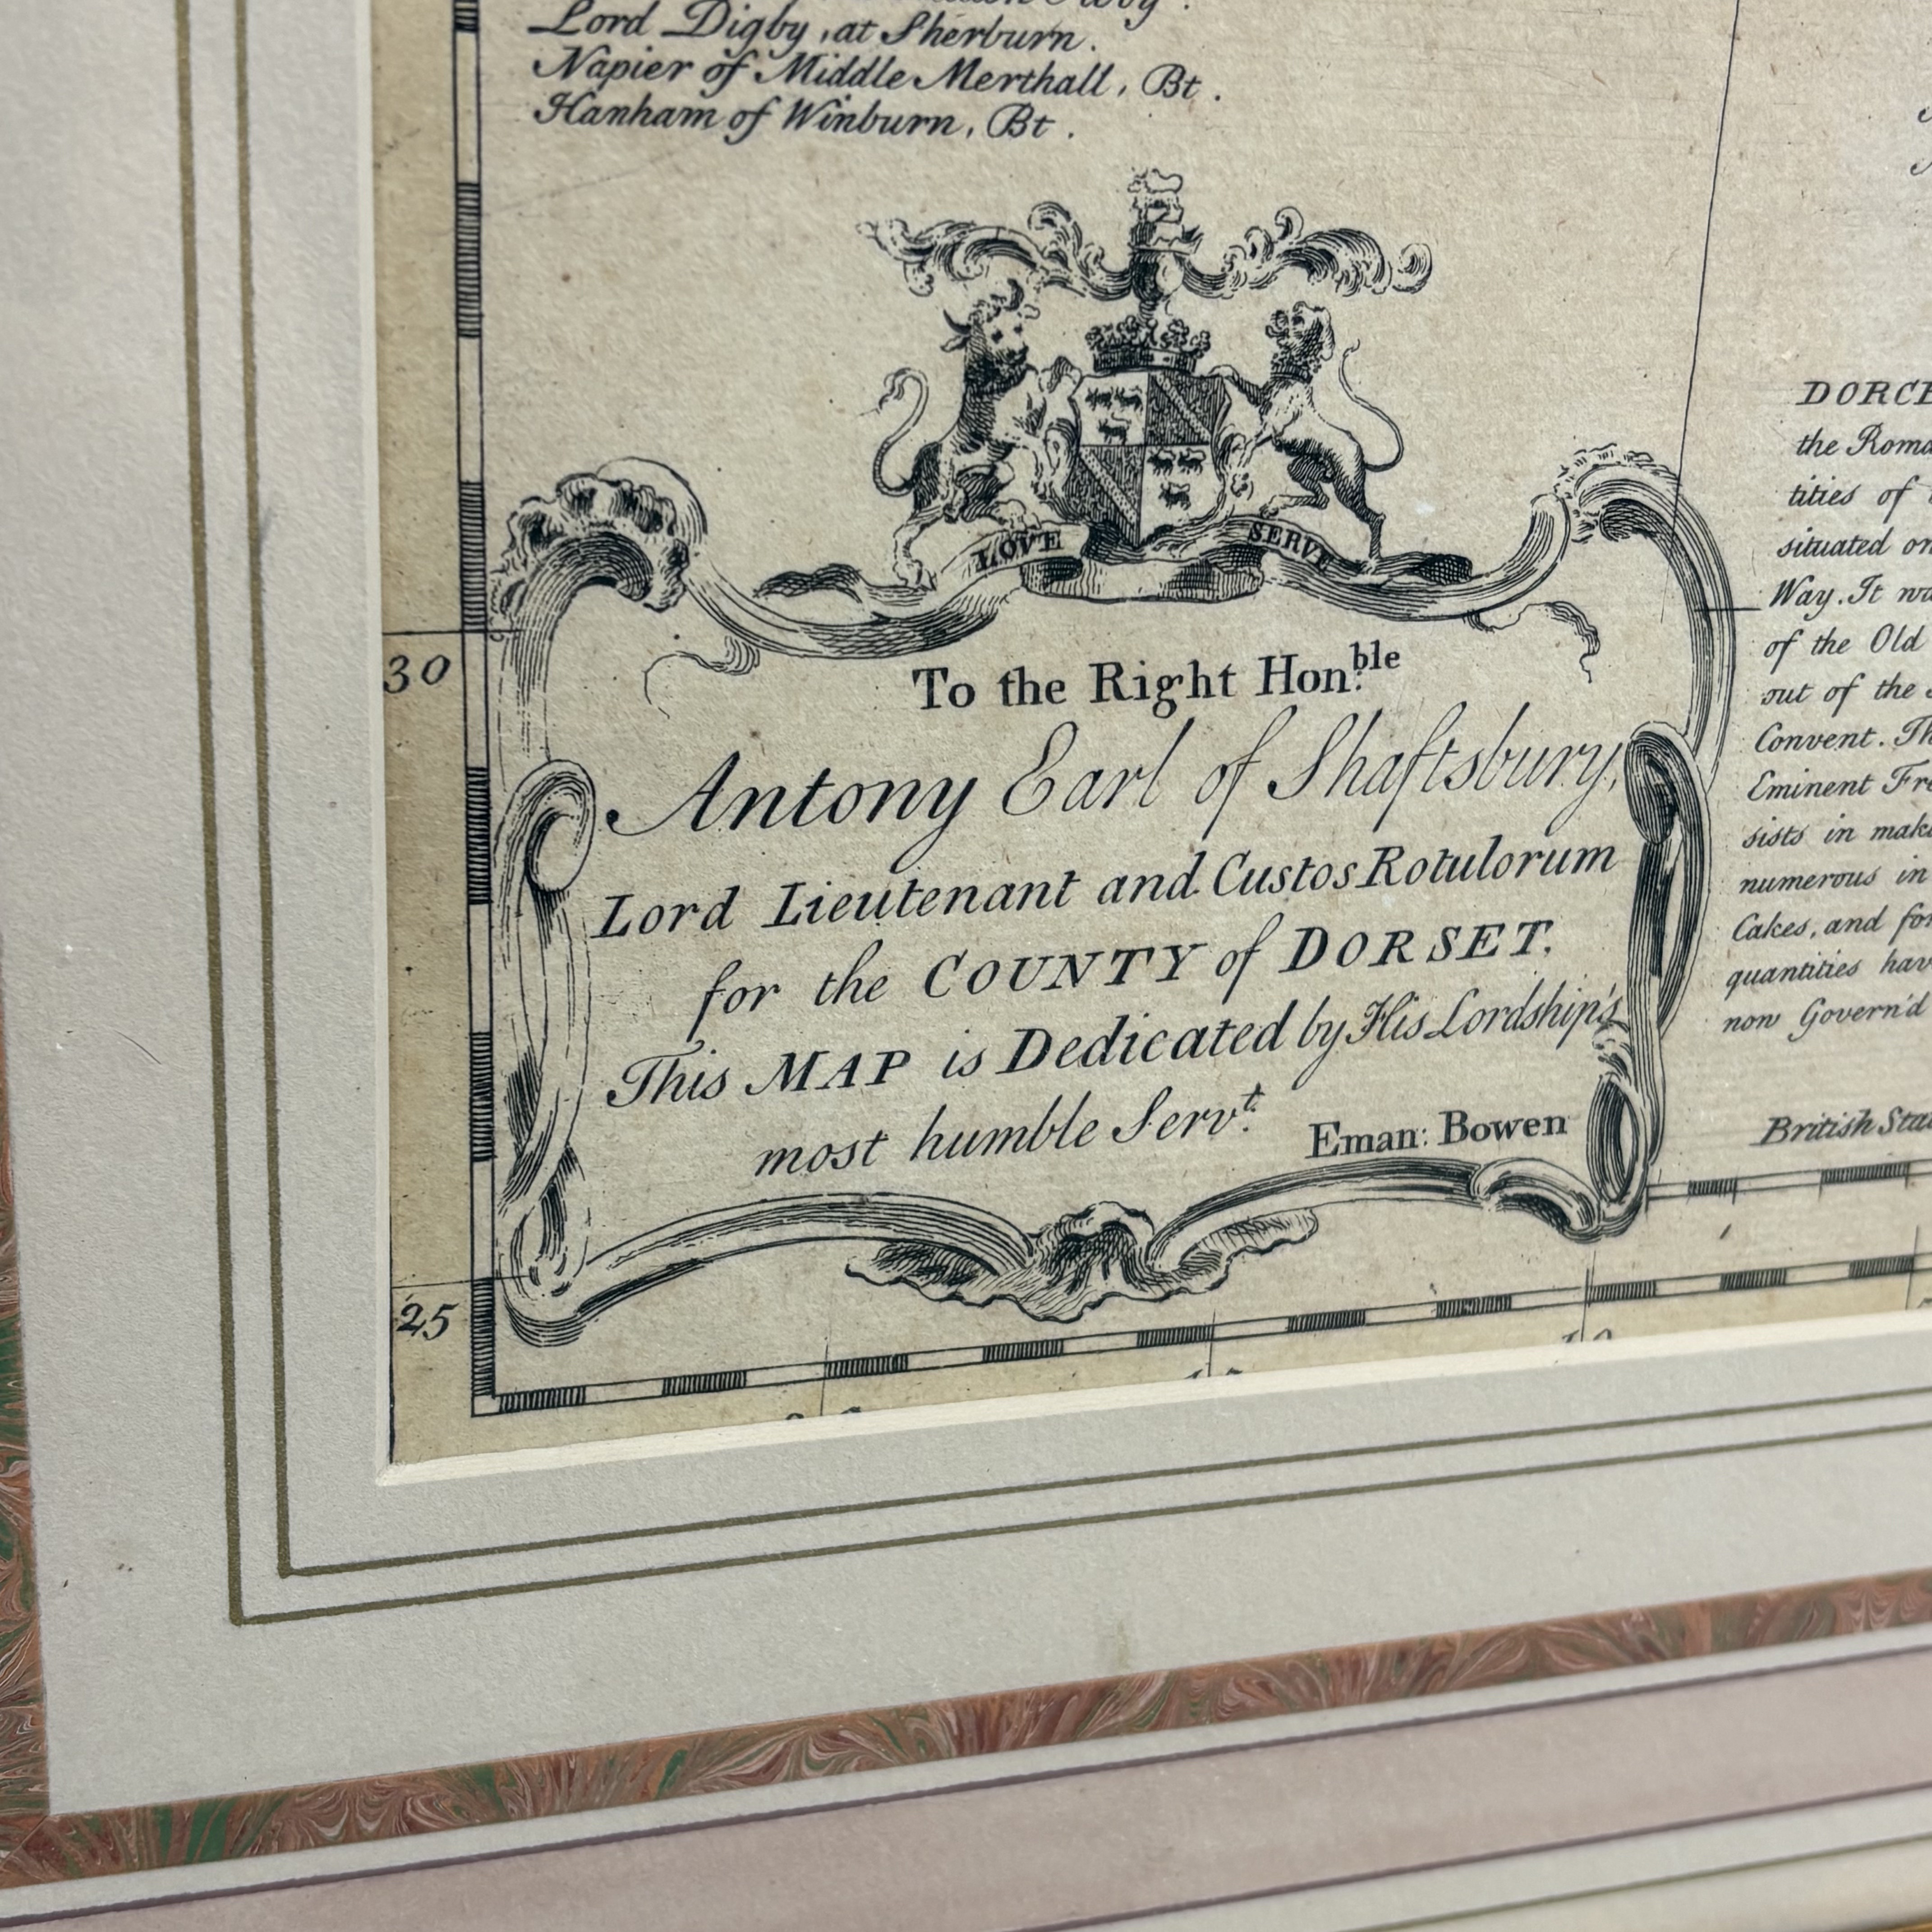 Lord Digby, at Sherburn.
Napier of Middle Merthall, Bt.
Hanham of Winburn, Bt.
LOVE SERVE
30
To the Right Hon.ble
Antony Earl of Shaftsbury,
Lord Lieutenant and Custos Rotulorum
for the COUNTY of DORSET,
This MAP is Dedicated by His Lordship's
most humble Serv.t
Eman: Bowen
25
the
tities of
situated
Way. It
of the Old
out of the
Convent.
Eminent
sists in
numerous in
Cakes, and
quantities
now Govern'd
British